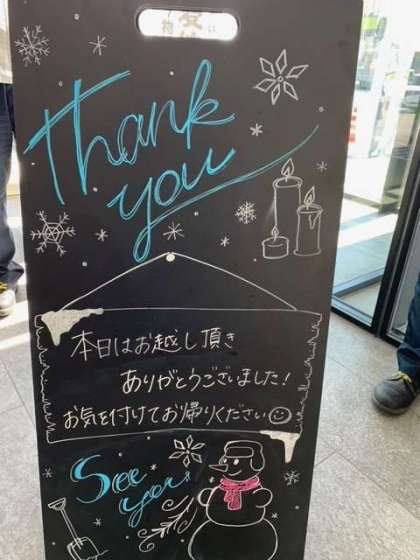 Thank
you
本日はお越し頂き
ありがとうございました!
お気を付けてお帰りください☺
See
you